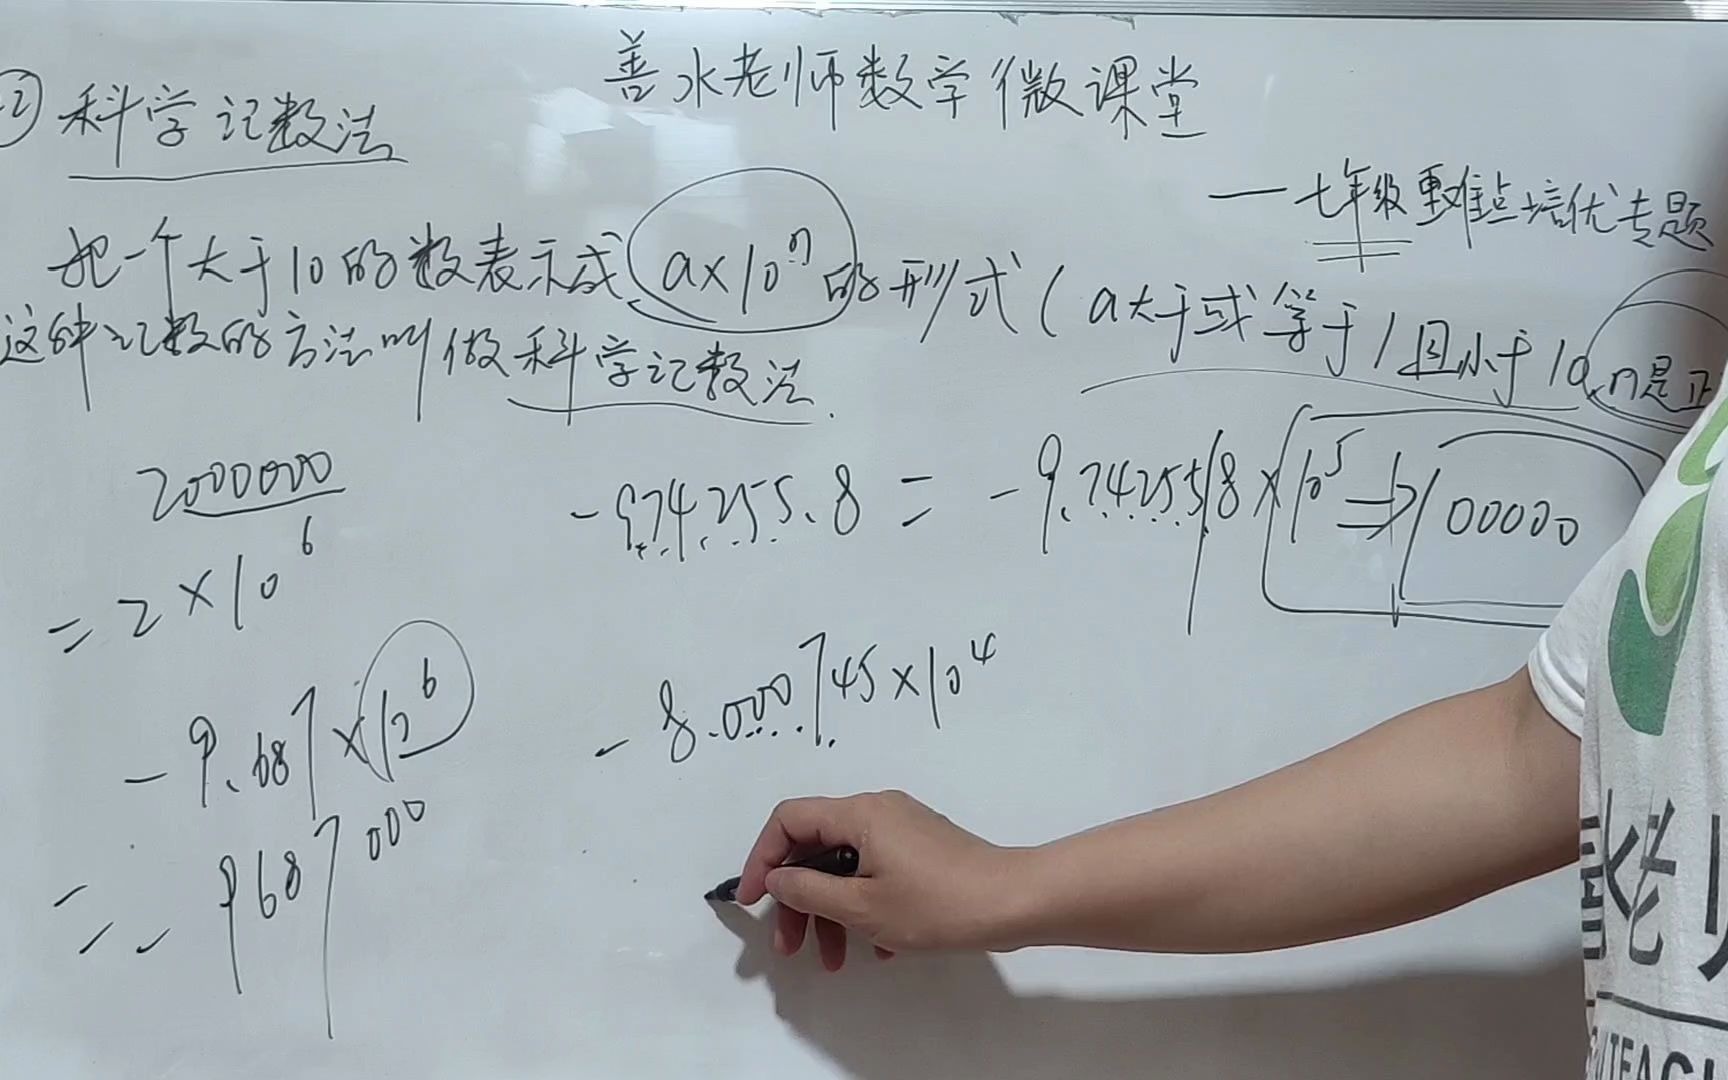 善水老师数学微课堂
② 科学记数法
——七年级重难点培优专题
把一个大于10的数表示成 a×10ⁿ 的形式(a大于或等于1且小于10,n是正
这种记数的方法叫做科学记数法.
2000000
=2×10⁶
-974255.8 = -9.742558×10⁵ ⇒ 100000
-9.687×10⁶
= -9687000
-8.0000745×10⁴
水老
TEACH